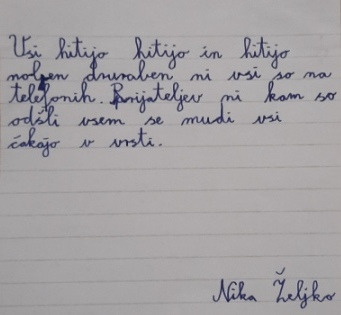 Vsi hitijo hitijo in hitijo
noben druraben ni vsi so na
telefonih. Prijateljev ni kam so
odšli vsem se mudi vsi
čakajo v vrsti.
Nika Željko